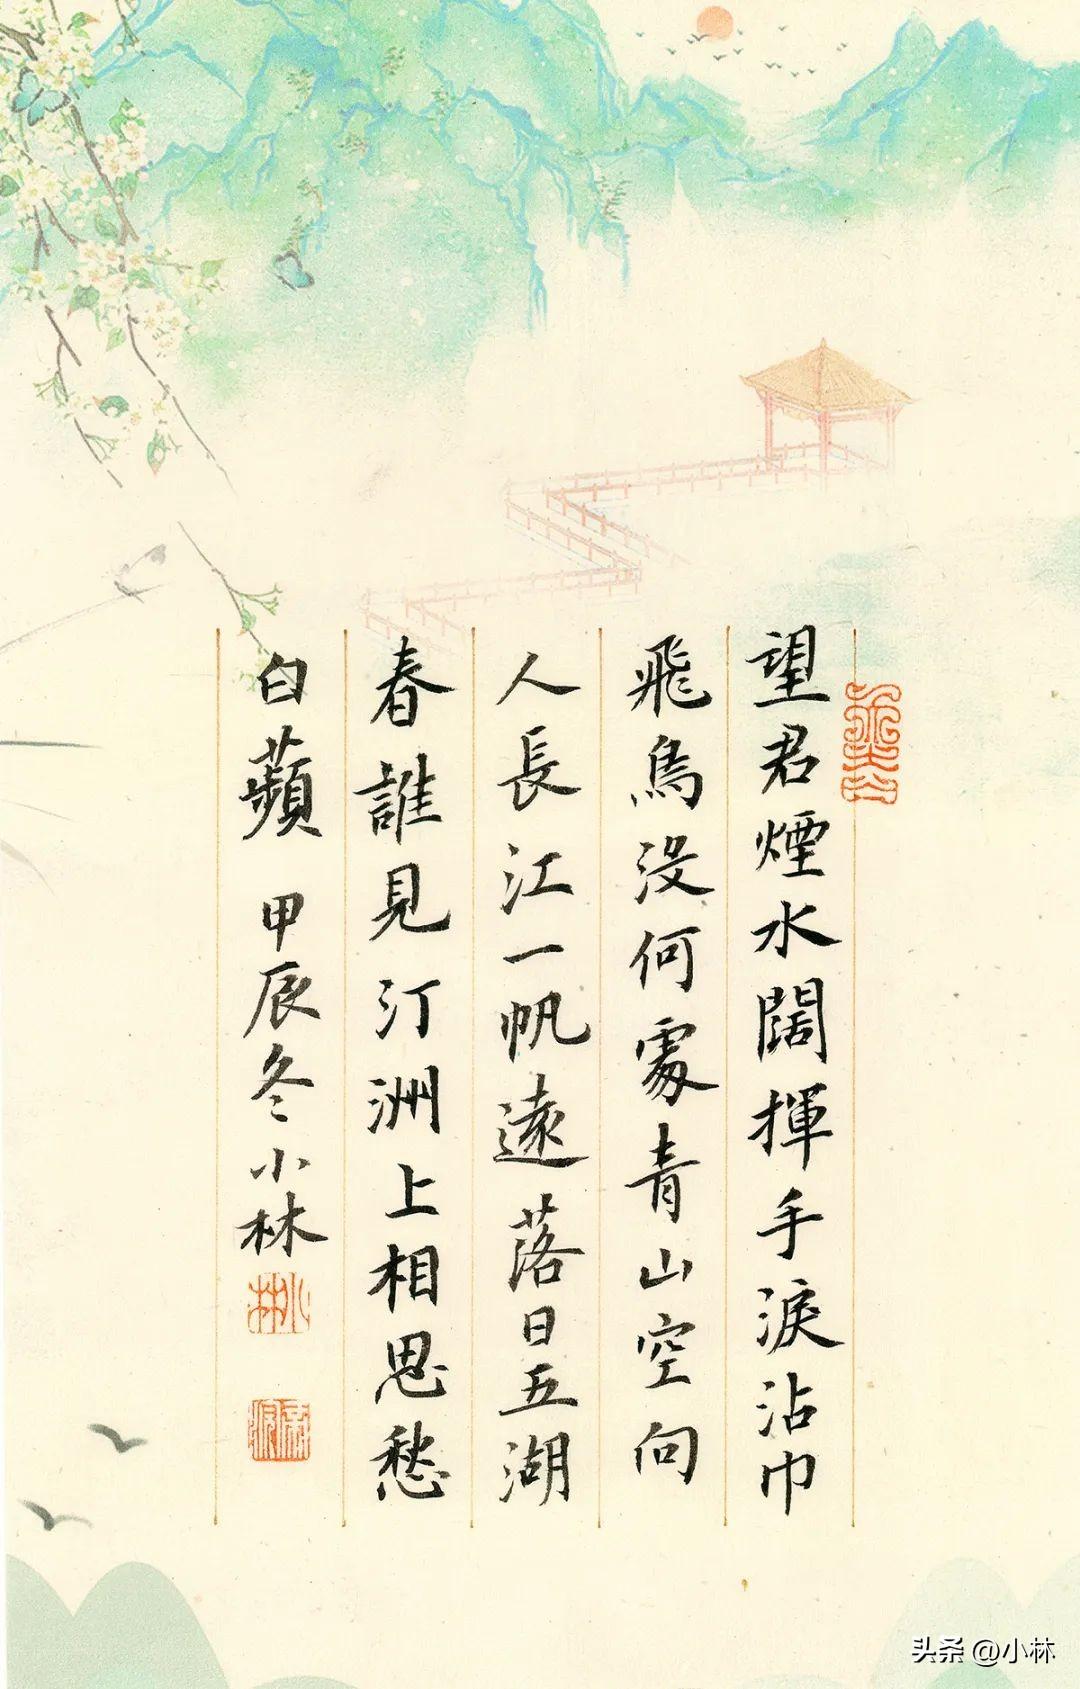 望君煙水闊揮手淚沾巾
飛鳥没何處青山空向
人長江一帆遠落日五湖
春誰見汀洲上相思愁
白蘋 甲辰冬小林
小林
头条 @小林